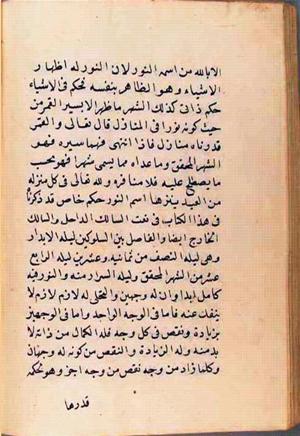 الا بالله من اسمه النور لان النور له اظهار
الاشياء وهو الظاهر بنفسه فحكم في الاشياء
حكم ذاتي كذلك الشهر ما ظهر الا بسير القمر من
حيث كونه نورا في المنازل قال تعالى والقمر
قدرناه منازل فاذا انتهى فيها سيره فهو
الشهر المحقق وما عداه مما يسمى شهرا فهو بحسب
ما يصطلح عليه فلا منافرة ولله تعالى في كل منزلة
من العبد ينزلها اسم النور حكم خاص قد ذكرنا
في هذا الكتاب في نعت السالك الداخل والسالك
الخارج ايضا والفاصل بين السلوكين ليلة الابدار
وهي ليلة النصف من ثمانية وعشرين ليلة الرابع
عشر من الشهر المحقق وليلة السرار منه والنور فيه
كامل ابدا وان له وجهين والتجلي له لازم لازم لا
ينفك عنه فاما في الوجه الواحد واما في الوجهين
بزيادة ونقص في كل وجه فله الكمال من ذاته لا
بد منه وله الزيادة والنقص من كونه له وجهان
وكلما زاد من وجه نقص من وجه اخر وهو لحكمة
قدرها